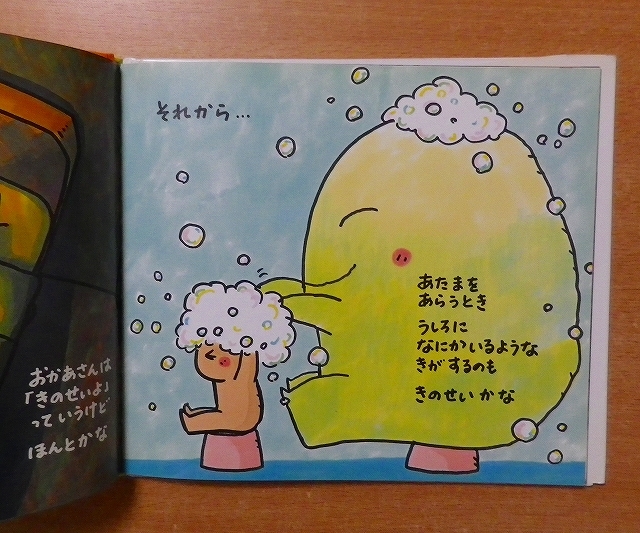 おかあさんは
「きのせいよ」
っていうけど
ほんとかな
それから…
あたまを
あらうとき
うしろに
なにかいるような
きがするのも
きのせいかな